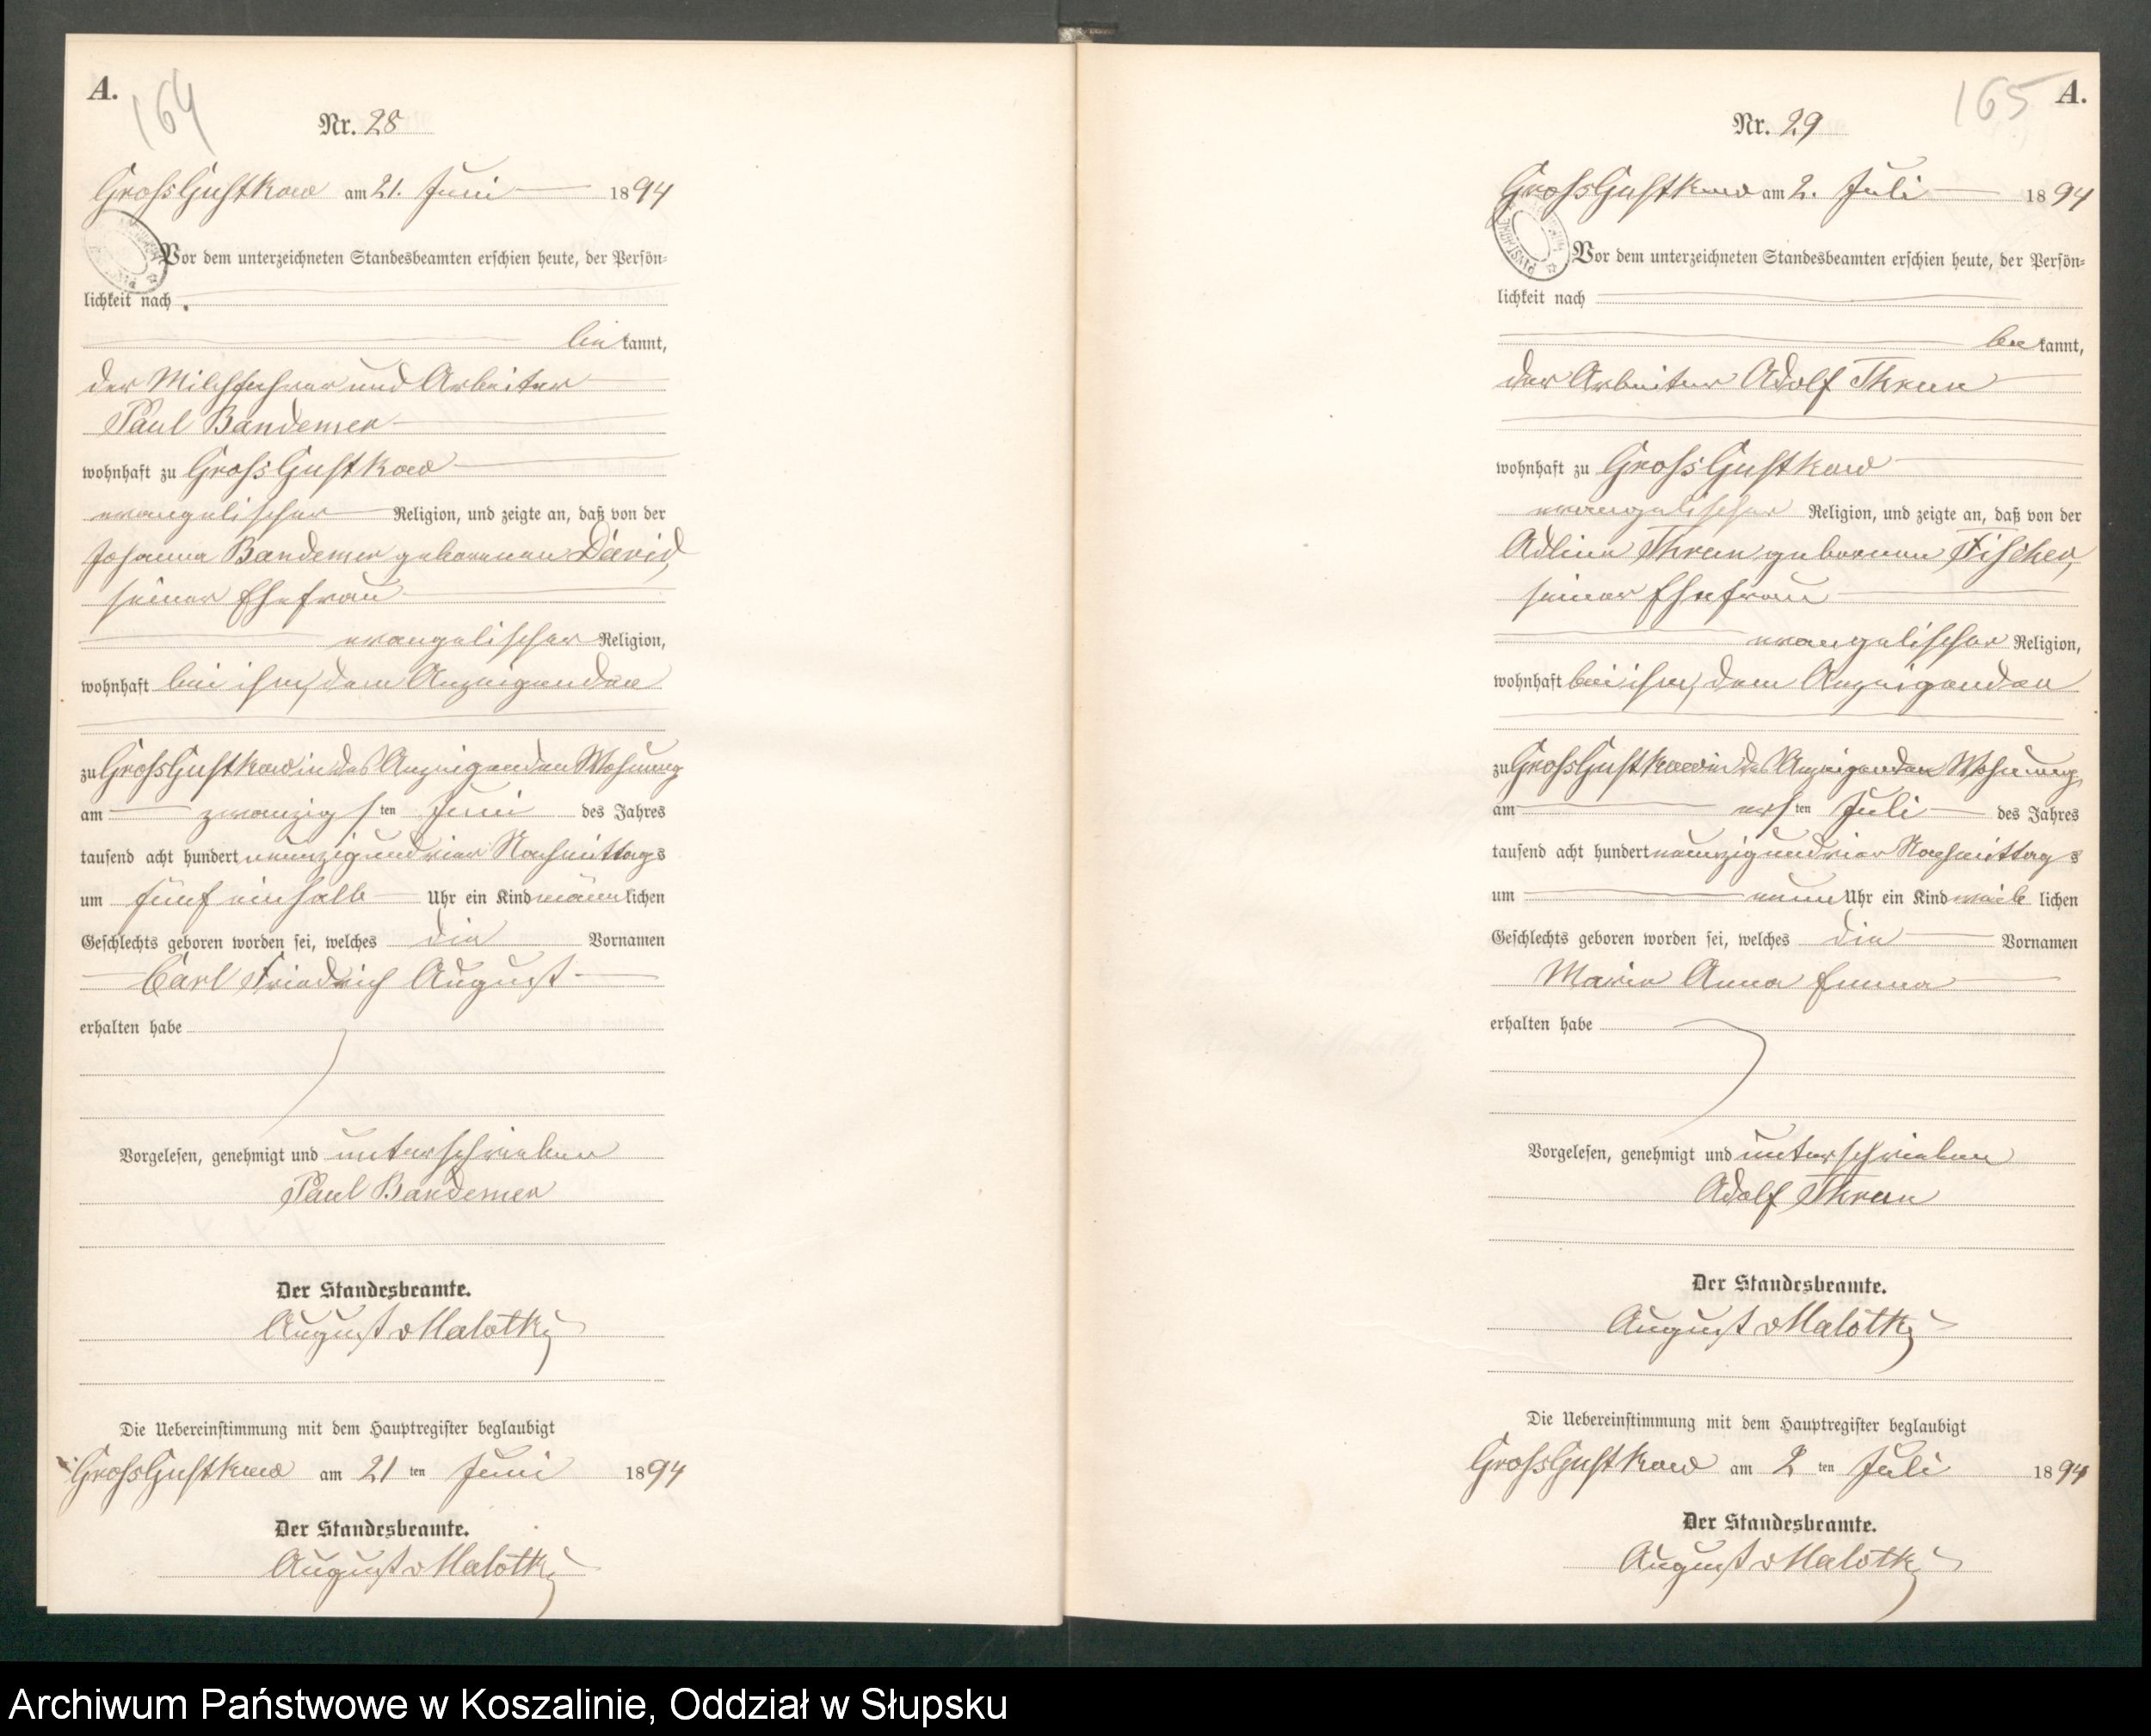 A.
164
Nr. 28
Groß Gustkow am 21. Juni 1894
Vor dem unterzeichneten Standesbeamten erschien heute, der Persön-
lichkeit nach
bekannt,
der Milchfahrer und Arbeiter
Paul Bandemer
wohnhaft zu Groß Gustkow
evangelischer Religion, und zeigte an, daß von der
Johanna Bandemer geborenen David,
seiner Ehefrau
evangelischer Religion,
wohnhaft bei ihm, dem Anzeigenden
zu Groß Gustkow in des Anzeigenden Wohnung
am zwanzigsten Juni des Jahres
tausend acht hundert neunzig und vier Nachmittags
um fünf einhalb Uhr ein Kind männlichen
Geschlechts geboren worden sei, welches die Vornamen
Carl Friedrich August
erhalten habe
Vorgelesen, genehmigt und unterschrieben
Paul Bandemer
Der Standesbeamte.
August v Malottki
Die Uebereinstimmung mit dem Hauptregister beglaubigt
Groß Gustkow am 21 ten Juni 1894
Der Standesbeamte.
August v Malottki
165
A.
Nr. 29
Groß Gustkow am 2. Juli 1894
Vor dem unterzeichneten Standesbeamten erschien heute, der Persön-
lichkeit nach
bekannt,
der Arbeiter Adolf Thrun
wohnhaft zu Groß Gustkow
evangelischer Religion, und zeigte an, daß von der
Adline Thrun geborenen Fischer,
seiner Ehefrau
evangelischer Religion,
wohnhaft bei ihm, dem Anzeigenden
zu Groß Gustkow in des Anzeigenden Wohnung
am ersten Juli des Jahres
tausend acht hundert neunzig und vier Nachmittags
um neun Uhr ein Kind weiblichen
Geschlechts geboren worden sei, welches die Vornamen
Marie Anna Emma
erhalten habe
Vorgelesen, genehmigt und unterschrieben
Adolf Thrun
Der Standesbeamte.
August v Malottki
Die Uebereinstimmung mit dem Hauptregister beglaubigt
Groß Gustkow am 2 ten Juli 1894
Der Standesbeamte.
August v Malottki
Archiwum Państwowe w Koszalinie, Oddział w Słupsku